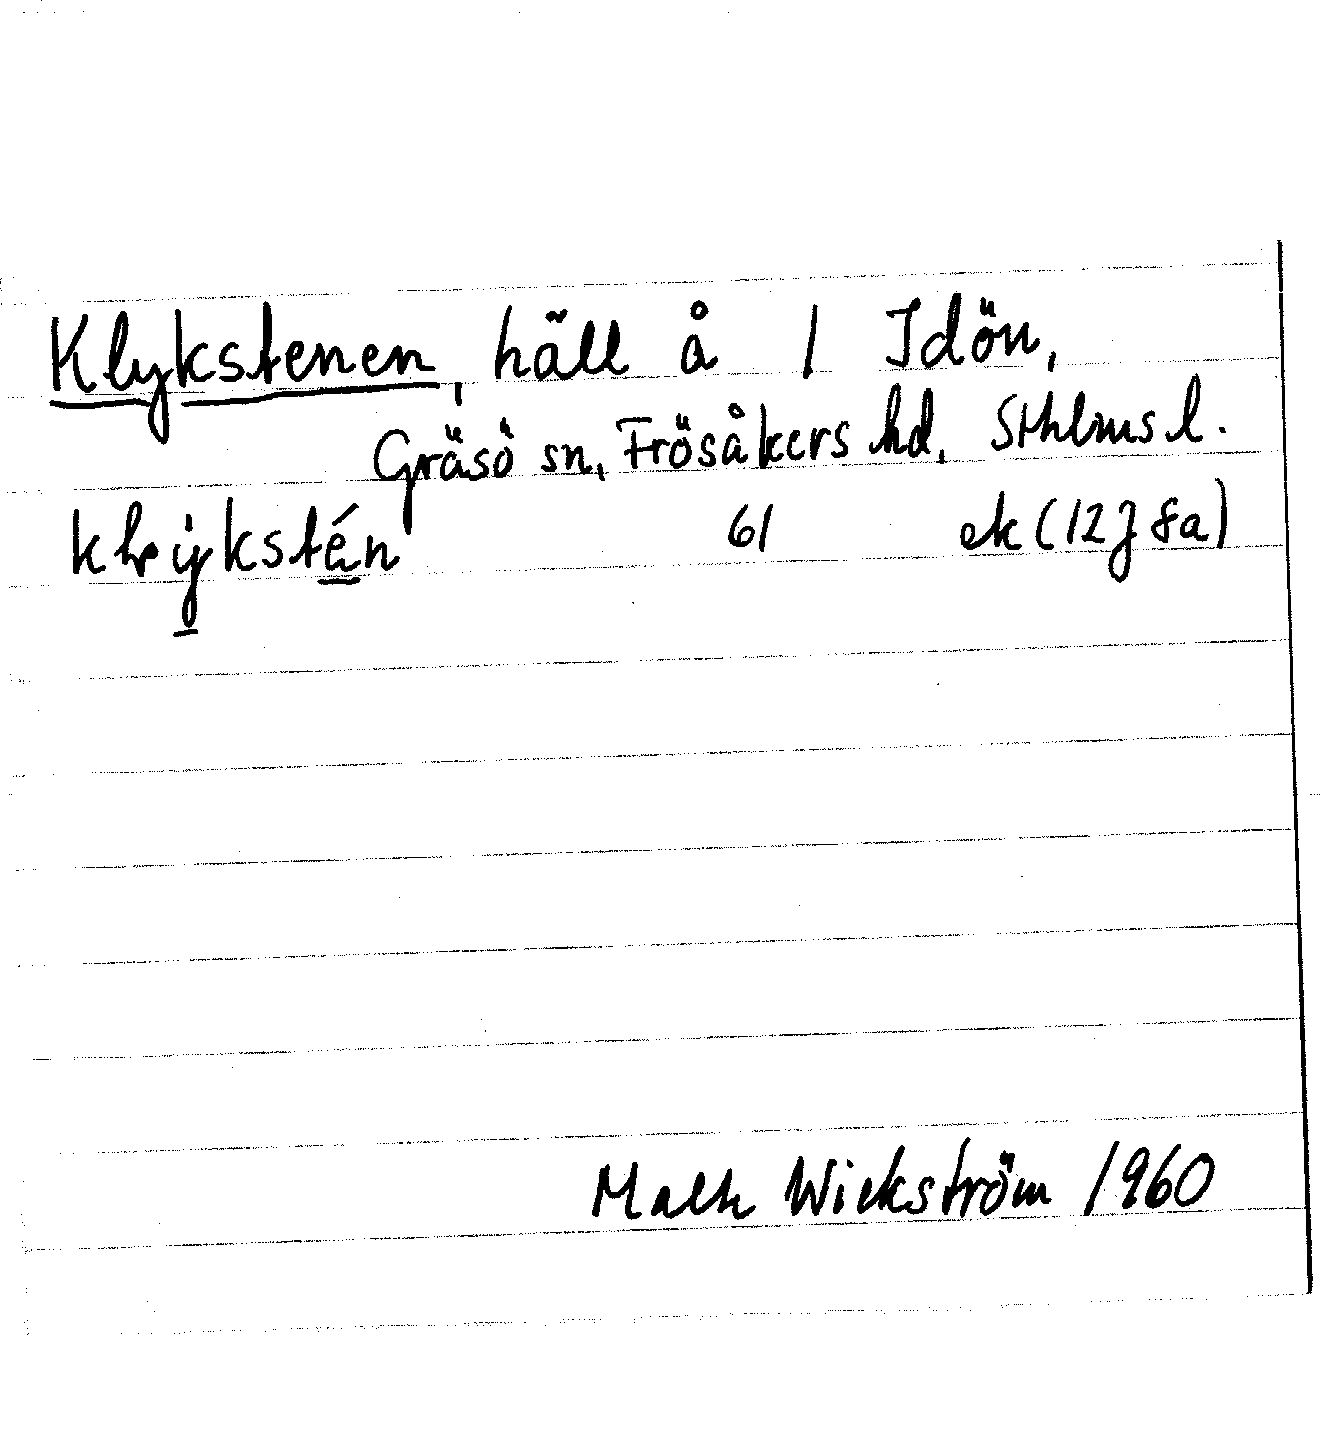 Klykstenen, häll å 1 Idön,
Gräsö sn, Frösåkers hd, Sthlms l.
61 ek (12J 8a)
Wickström 1960